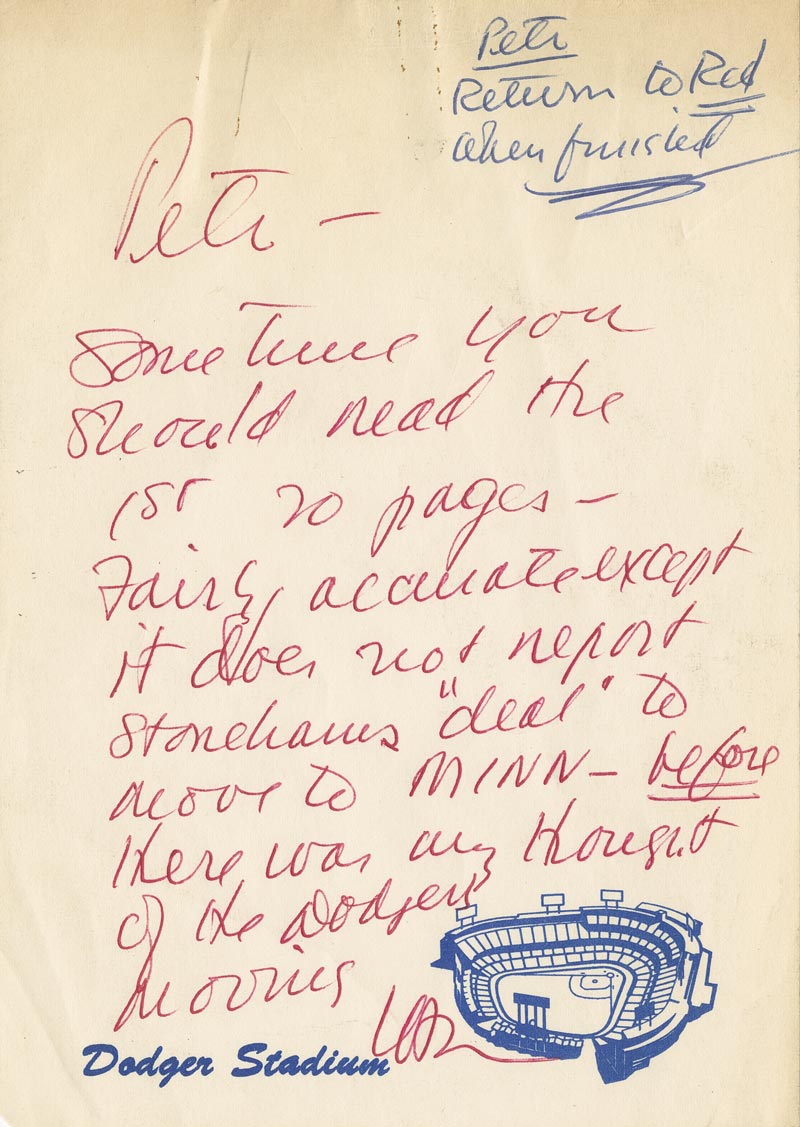 Pete
Return to Red
when finished
Pete —
Sometime you
should read the
1st 20 pages —
Fairly accurate except
it does not report
Stonehams "deal" to
move to MINN — before
there was any thought
of the Dodgers
moving
Dodger Stadium